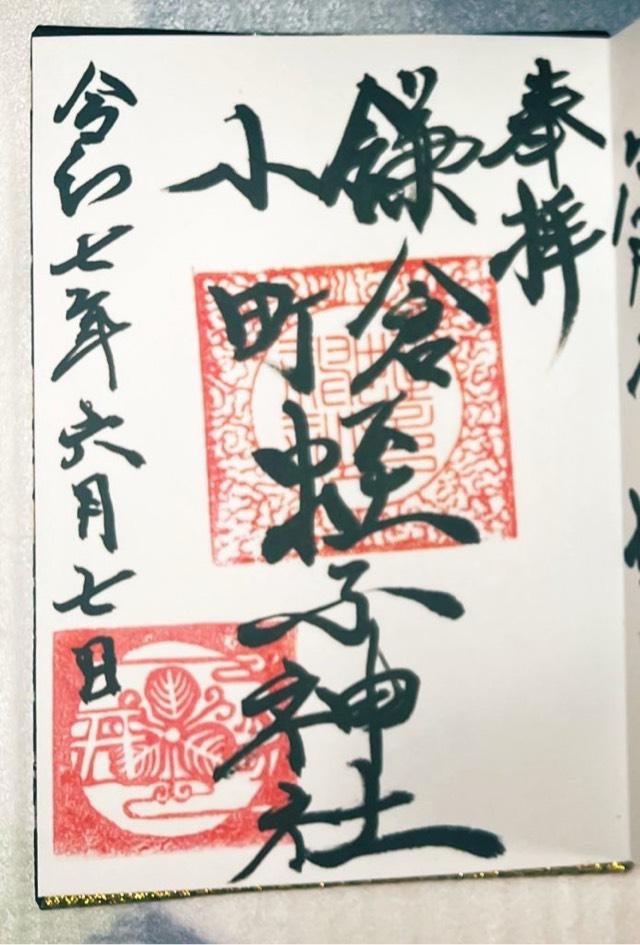 奉拝
鎌倉
小町
蛭子神社
令和七年六月七日